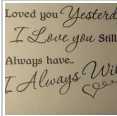 Loved you Yesterd
I Love you Still
Always have..
I Always Wi